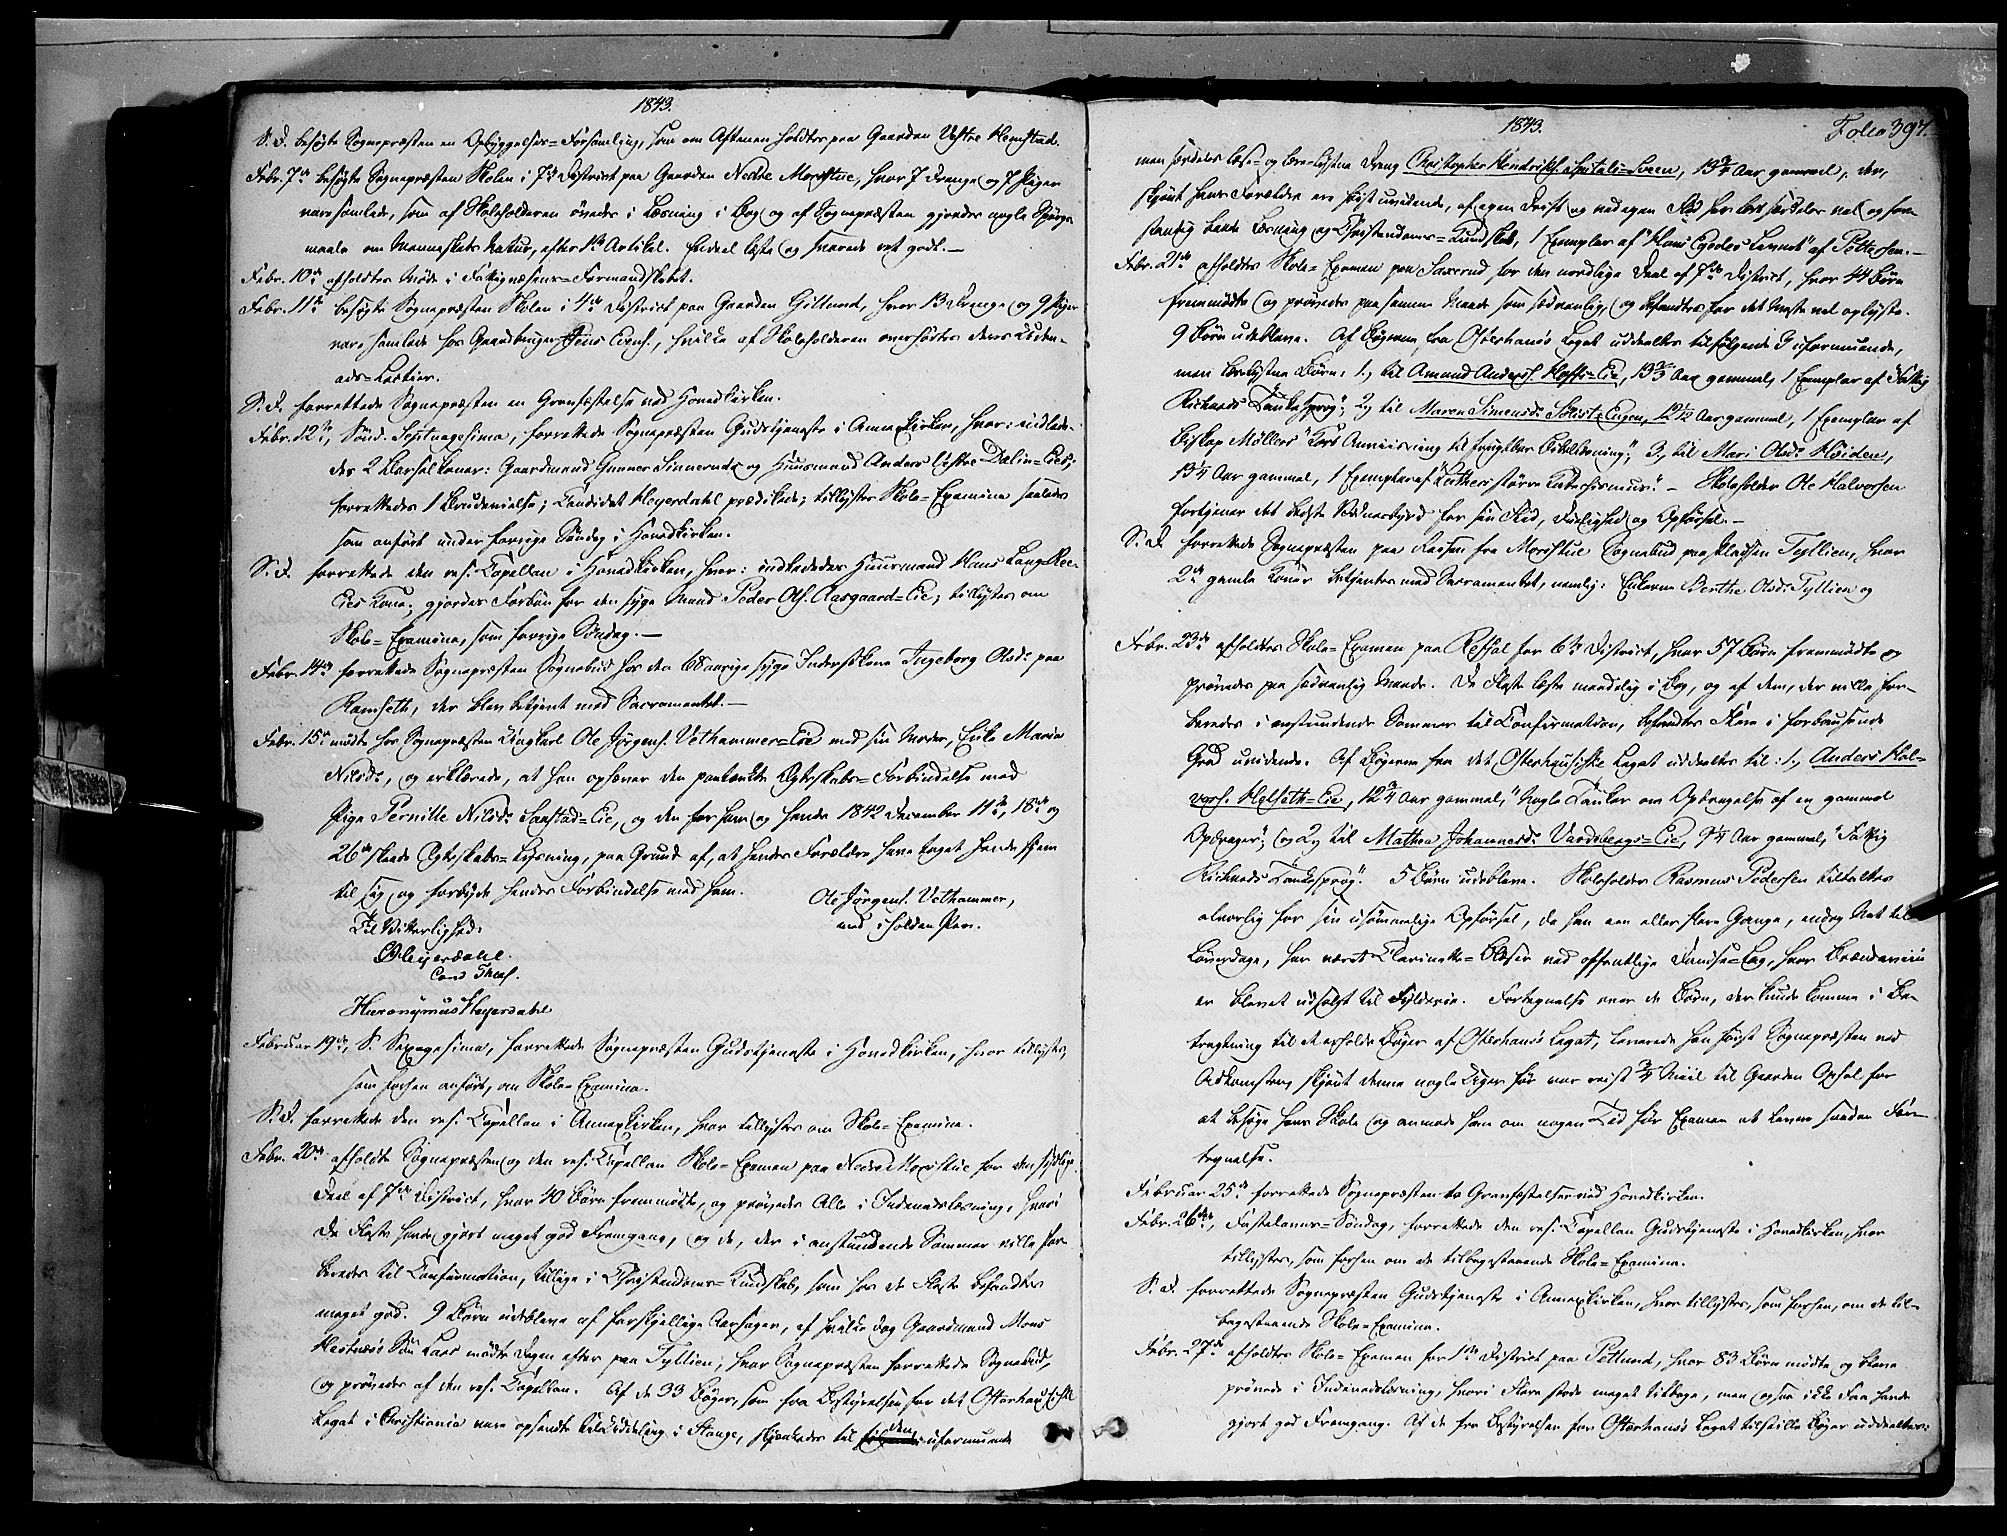 1843.
S. D. besøgte Sognepræsten en Opbyggelses=Forsamling, som om Aftenen holdtes paa Gaarden Vestre Hemstad.
Febr. 7de besøgte Sognepræsten Skolen i 7de District paa Gaarden Nedre Moestue, hvor 7 Drenge og 7 Piger
vare samlede, som af Skoleholderen øvedes i Læsning i Bog og af Sognepræsten gjordes nogle Spørgs-
maale om Menneskets Natur, efter 1ste Artikel. Endeel læste og svarede ret godt.—
Febr. 10de afholdtes Møde i Fattigvæsens=Formandskabet.
Febr. 11te besøgte Sognepræsten Skolen i 4de District paa Gaarden Gillund, hvor 13 Drenge og 9 Piger
vare samlede hos Gaardbruger Jens, hvilke af Skoleholderen overhørtes deres Uden-
ads=Lectier.
S. D. forrettede Sognepræsten en Gravfæstelse ved Hovedkirken.
Febr. 12te, Sønd. Septuagesima, forrettede Sognepræsten Gudstjeneste i Annexkirken, hvor: indlede-
des 2 Barselkoner: Gaardmand Gunner Sinnerud og Huusmand Anders Vestre Dalin=Eies;
forrettedes 1 Brudevielse; Candidat Heyerdahl prædikede; tillystes Skole=Examina saaledes
som anført under forrige Søndag i Hovedkirken.
S. D. forrettede den res. Capellan i Hovedkirken, hvor: indlededes Huusmand Hans Lang
Eies Kone; gjordes Forbøn for den syge Mand Peder Ols. Aasgaard=Eie; tillystes om
Skole=Examina, som forrige Søndag.—
Febr. 14de forrettede Sognepræsten Sognebud hos den 68 aarige syge Inderstkone Ingeborg Olsd. paa
Ramseth, der blev betjent med Sacramentet.—
Febr. 15de mødte hos Sognepræsten Ungkarl Ole Jørgens. Vethammer=Eie med sin Moder, Enke Maria
Nilsd., og erklærede, at han ophæver den paatænkte Ægteskabs=Forbindelse med
Pige Pernille Nilsd. Saastad=Eie, og den for ham og hende 1842 December 11te, 18de og
26de skeede Ægteskabs=Lysning, paa Grund af, at hendes Forældre have taget hende hjem
til sig og forbyde hendes Forbindelse med ham.
Ole Jørgens. Vethammer,
med iholden Pen.
Til Vitterlighed:
Heyerdahl.
Cand. Theol.
Hieronymus Heyerdahl
Februar 19de, S. Sexagesima, forrettede Sognepræsten Gudstjeneste i Hovedkirken, hvor tillystes,
som forhen anført, om Skole=Examina.
S. D. forrettede den res. Capellan i Annexkirken, hvor tillystes om Skole=Examina.
Febr. 20de afholdte Sognepræsten og den res. Capellan Skole=Examen paa Nedre Moestue for den sydlige
Deel af 7de District, hvor 40 Børn fremmødte, og prøvedes Alle i Indenadslæsning, hvori
De Fleste havde gjort meget god Fremgang, og de, der i anstundende Sommer ville for-
beredes til Confirmation, tillige i Christendoms=Kundskab, som hos de Fleste befandtes
meget god. 9 Børn udebleve af forskjellige Aarsager, af hvilke dog Gaardmand Mons
Hestnæs's Søn Lars mødte Dagen efter paa Tyllien, hvor Sognepræsten forrettede Sognebud,
og prøvedes af den res. Capellan. Af de 33 Bøger, som fra Bestyrelsen for det Osterhausiske
Legat i Christiania vare opsendte til Uddeling i Stange, skjænkedes til den uformuende

1843.
Folio 397.
men særdeles læse= og lære=lystne Dreng Christopher Hendriks. Spitals=Sveen, 13 3/4 Aar gammel, der,
skjønt hans Forældre ere høist uvidende, af egen Drift og ved egen Flid har lært særdeles vel og for-
standig baade Læsning og Christendoms=Kundskab, 1 Exemplar af "Hans Egedes Levnet" af Pettersen.—
Febr. 21de afholdtes Skole=Examen paa Saxerud for den nordlige Deel af 7de District, hvor 44 Børn
fremmødte og prøvedes paa samme Maade som sædvanlig, og befandtes for det Meste vel oplyste.
9 Børn udebleve. Af Bøgerne fra Osterhaus's Legat uddeeltes til følgende 3 uformuende,
men lærelystne Børn: 1, til Amund Anders. Hoffs=Eie, 13 2/3 Aar gammel, 1 Exemplar af "Fattig
Richards Tankesprog"; 2, til Maren Simensd. Solist=Engen, 12 1/2 Aar gammel, 1 Exemplar af
Biskop Møllers "Kort Anviisning til frugtbar Bibellæsning"; 3, til Mari Olsd. Høiden,
13 1/4 Aar gammel, 1 Exemplar af "Luthers større Katechismus."— Skoleholder Ole Halvorsen
fortjener det bedste Vidnesbyrd for sin Flid, Duelighed og Opførsel.—
S. D. forrettede Sognepræsten paa Reisen fra Moestue Sognebud paa Pladsen Tyllien, hvor
2de gamle Koner betjentes med Sacramentet, nemlig: Enkerne Berthe Olsd. Tyllien og
Febr. 23de afholdtes Skole=Examen paa Refsal for 6te District, hvor 57 Børn fremmødte og
prøvedes paa sædvanlig Maade. De Fleste læste maadelig i Bog, og af dem, der ville for-
beredes i anstundende Sommer til Confirmation, befandtes Flere i forbausende
Grad uvidende. Af Bøgerne fra det Osterhausiske Legat uddeeltes til: 1, Anders Hal-
vors. Helseth=Eie, 12 3/4 Aar gammel, "Nogle Tanker om Opdragelse af en gammel
Opdrager"; og 2, til Mathea Johannesd. Vaardbergs=Eie, 9 1/4 Aar gammel, "Fattig
Richards Tankesprog". 5 Børn udebleve. Skoleholder Rasmus Pedersen tiltaltes
alvorlig for sin usømmelige Opførsel, da han een eller flere Gange, endog Nat til
Løverdage, har været Clarinette=Blæser ved offentlige Dandse=Lag, hvor Brændeviin
er blevet udsolgt til Fylderie. Fortegnelse over de Børn, der kunde komme i Be-
tragtning til at erholde Bøger af Osterhaus's Legat, leverede han først Sognepræsten ved
Ankomsten, skjønt denne nogle Uger før var reist 3/4 Miil til Gaarden Opsal for
at besøge hans Skole og anmode ham om nogen Tid før Examen at levere saadan For-
tegnelse.
Februar 25de forrettede Sognepræsten to Gravfæstelser ved Hovedkirken.
Febr. 26de, Fastelavns=Søndag, forrettede den res. Capellan Gudstjeneste i Hovedkirken, hvor
tillystes, som forhen om de tilbagestaaende Skole=Examina.
S. D. forrettede Sognepræsten Gudstjeneste i Annexkirken, hvor tillystes, som forhen, om de til-
bagestaaende Skole=Examina.
Febr. 27de afholdtes Skole=Examen for 1ste District paa Petlund, hvor 83 Børn mødte og bleve
prøvede i Indenadslæsning, hvori Flere stode meget tilbage, men ogsaa ikke Faa havde
gjort god Fremgang. Af de fra Bestyrelsen for Osterhaus's Legat tilstillede Bøger uddeeltes: